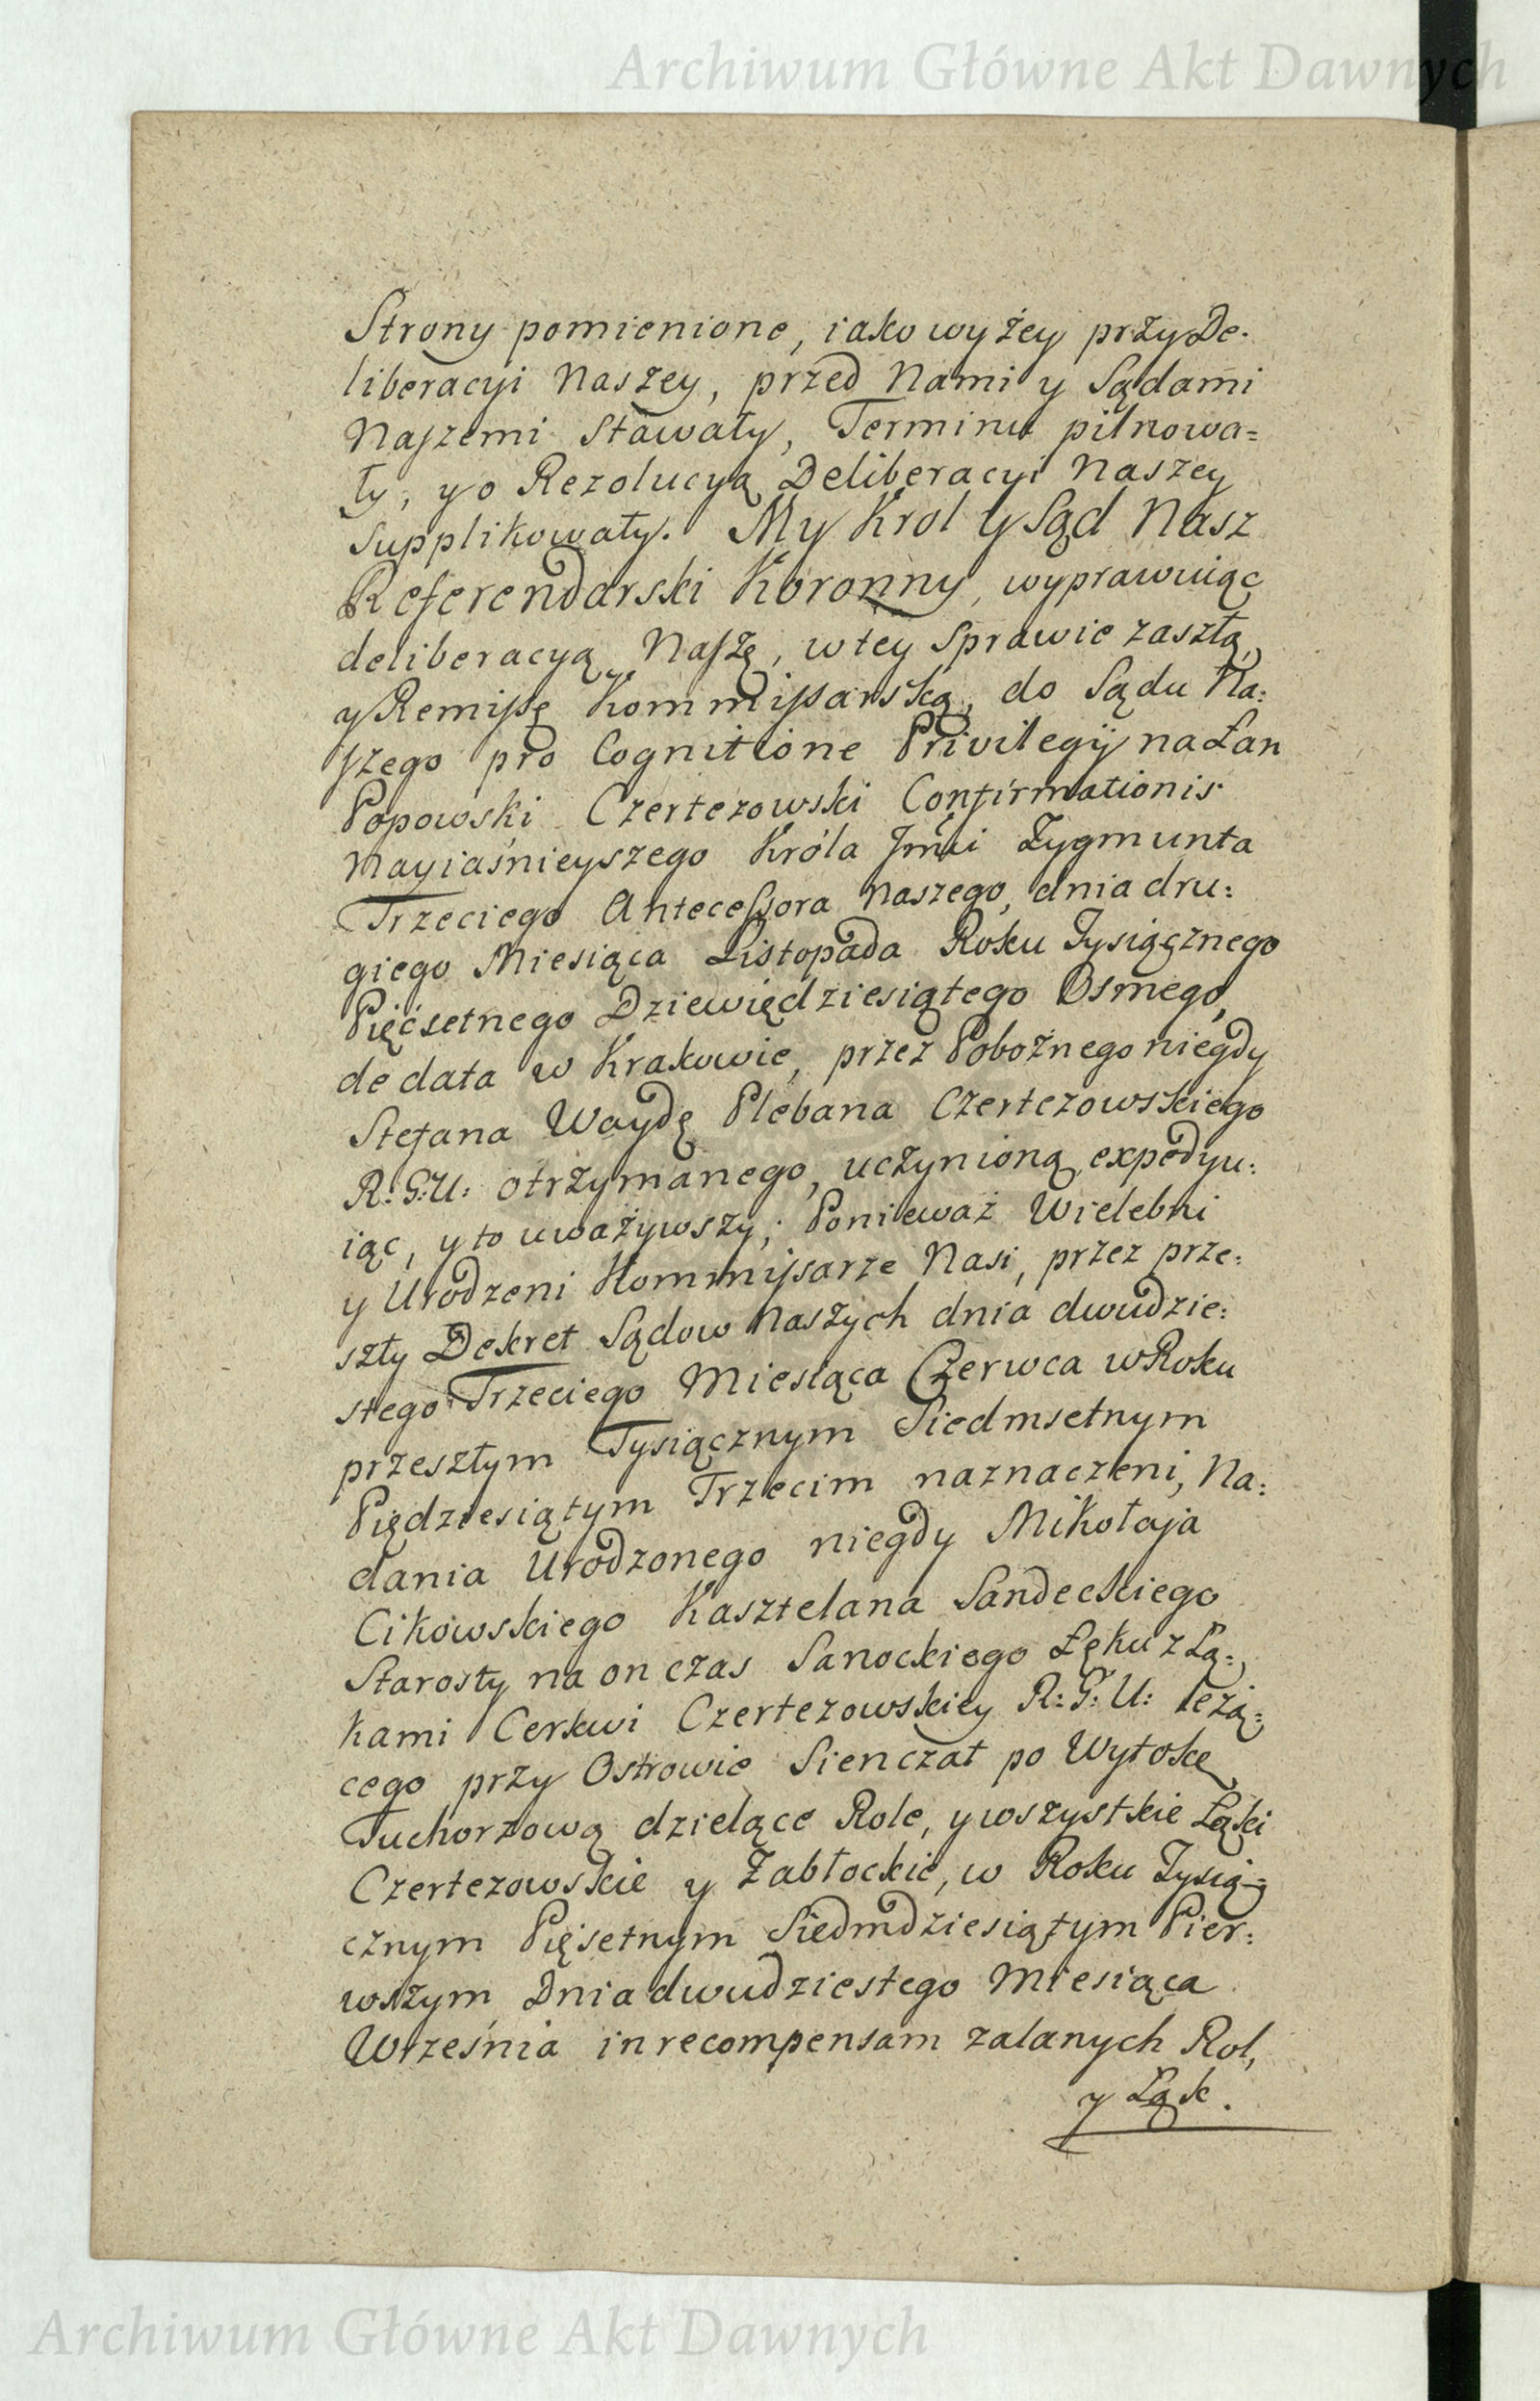 Archiwum Główne Akt Dawnych
Strony pomienione, iako wyżey przy De-
liberacyi Naszey, przed Nami y Sądami
Naszemi Stawały, Terminu pilnowa=
ły, y o Rezolucyą Deliberacyi Naszey
supplikowały. My Krol y Sąd Nasz
Referendarski Koronny, wyprawuiąc
deliberacyą Naszę, w tey Sprawie zaszłą,
y Remissę Kommissarską, do Sądu Na:
szego pro Cognitione Privilegij na Łan
Popowski Czertezowski Confirmationis
Nayiaśnieyszego Króla Jmći Zygmunta
Trzeciego Antecessora Naszego, dnia dru:
giego Miesiąca Listopada Roku Tysiącznego
Pięćsetnego Dziewiędziesiątego Osmego,
de data w Krakowie, przez Pobożnego niegdy
Stefana Waydę Plebana Czertezowskiego
R: G: U: otrzymanego, uczynioną expedyu:
iąc, y to uważywszy; Ponieważ Wielebni
y Urodzeni Kommissarze Nasi, przez prze:
szły Dekret Sądow Naszych dnia dwudzie:
stego Trzeciego Miesiąca Czerwca w Roku
przeszłym Tysiącznym Siedmsetnym
Piędziesiątym Trzecim naznaczeni, Na:
dania Urodzonego niegdy Mikołaja
Cikowskiego Kasztelana Sandeckiego
Starosty na on czas Sanockiego Łęku z Łą:
kami Cerkwi Czertezowskiey R: G: U: leżą:
cego przy Ostrowie Sienczat po Wytokę
Tuchorzową dzielące Role, y wszystkie Łąki
Czertezowskie y Zabłockie, w Roku Tysią=
cznym Pięsetnym Siedmdziesiątym Pier:
wszym Dnia dwudziestego Miesiąca
Września in recompensam zalanych Rol,
y Łąk.
Archiwum Główne Akt Dawnych